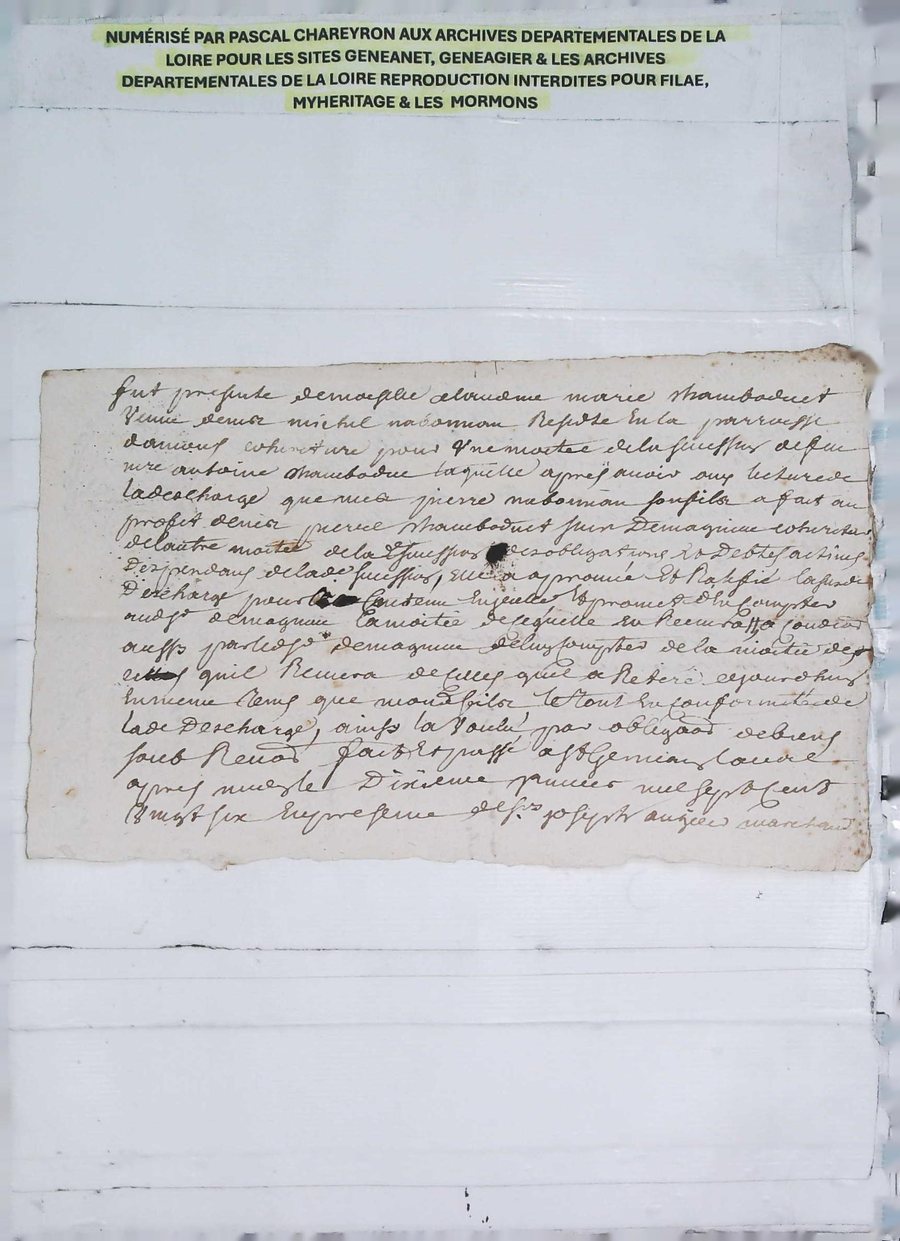 NUMÉRISÉ PAR PASCAL CHAREYRON AUX ARCHIVES DEPARTEMENTALES DE LA
LOIRE POUR LES SITES GENEANET, GENEAGIER & LES ARCHIVES
DEPARTEMENTALES DE LA LOIRE REPRODUCTION INTERDITES POUR FILAE,
MYHERITAGE & LES MORMONS
fut presente demoiselle claudine marie chamboduct
veuve michel nabonnan Residte En la parroisse
coheretiere pour Une moitee de la succession de feu
mre antoine chamboduc laquelle apres avoir lecture de
la descharge que pierre nabonnan son fils a fait au
profit de pierre chamboduct sieur Demagnieu
de lautre moitee de la succession des obligations Et Debtes actives
Despendans de lade succession, a aprouvée Et Ratifié
Descharge pour Le Contenu En icelle Et promet
demagnieu La moitié
aussy par ledt demagnieu de la moitié des
quil Retirera de celles quil a Retiré cejourdhuy
En meme tems que fils le tout En conformité de
lade Descharge, ainsy la voulu par obligaon de biens
soub Renon fait Et passé a St Germain laval
apres midy le Dixieme mil sept cent
Vingt six En presence de sr joseph marchand